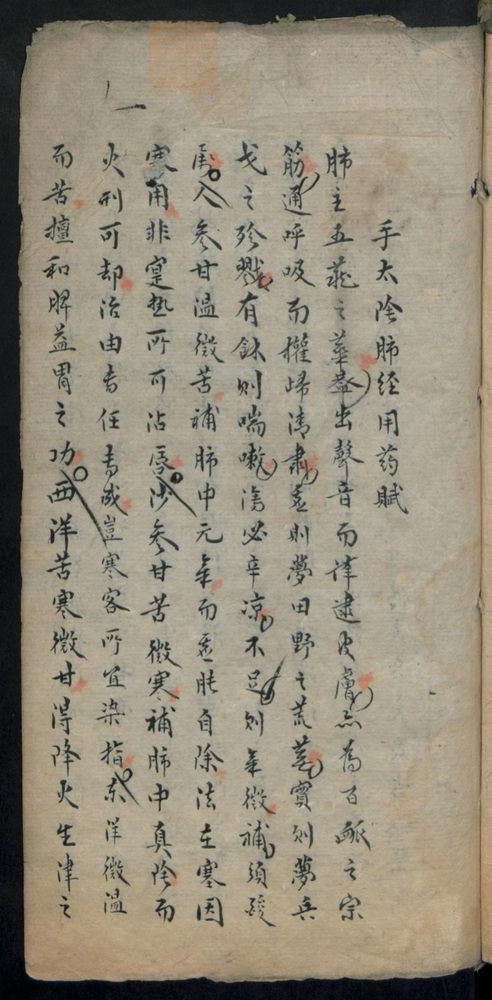 手太陰肺經用药賦
肺主五藏之華蓋出聲音而律逮皮膚亦為百脈之宗
筋通呼吸而權歸清肅虛則夢田野之荒蕪實則夢兵
戈之殄戮有餘則喘嗽瀉必辛凉不足則氣微補須酸
人參甘溫微苦補肺中元氣而虛眩自除法在寒因
寒用非寔热所可沾唇沙參甘苦微寒補肺中真陰而
火刑可却治由专任专咸豈寒客所宜染指东洋微溫
而苦擅和脾益胃之功西洋苦寒微甘得降火生津之